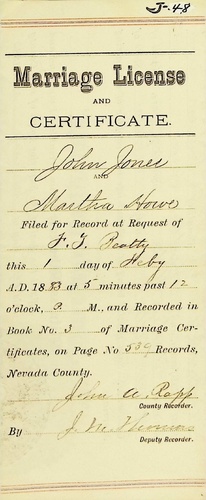 J-48
Marriage License
AND
CERTIFICATE.
John Jones
AND
Martha Howe
Filed for Record at Request of
F. T. Beatty
this 1 day of Feby
A.D. 1883 at 5 minutes past 12
o'clock, P. M., and Recorded in
Book No. 3 of Marriage Cer-
tificates, on Page No Records,
Nevada County.
John A. Rapp
County Recorder.
By J. W. Thomas
Deputy Recorder.